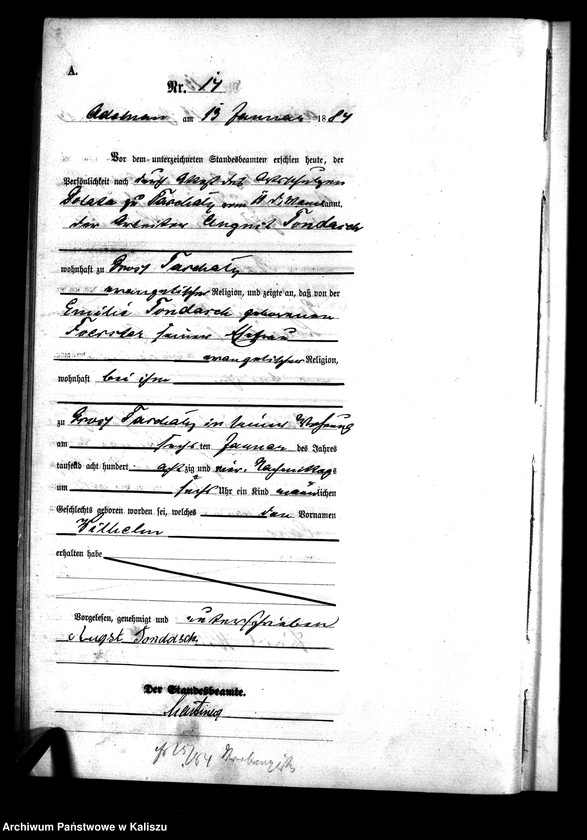 A.
Nr. 17
Adelnau am 13 Januar 1884
Vor dem unterzeichneten Standesbeamten erschien heute, der
Persönlichkeit nach durch Attest des Ortsschulzen
zu Tarchaly vom d. kannt,
der Arbeiter August Tondasch
wohnhaft zu Gross Tarchaly
evangelischer Religion, und zeigte an, daß von der
Emilie Tondasch geborenen
Foerster seiner Ehefrau
evangelischer Religion,
wohnhaft bei ihm
zu Gross Tarchaly in seiner Wohnung
am sechs ten Januar des Jahres
tausend acht hundert achtzig und vier, Nachmittags
um sechs Uhr ein Kind männlichen
Geschlechts geboren worden sei, welches den Vornamen
Wilhelm
erhalten habe
Vorgelesen, genehmigt und unterschrieben
August Tonddsch.
Der Standesbeamte.
Archiwum Państwowe w Kaliszu